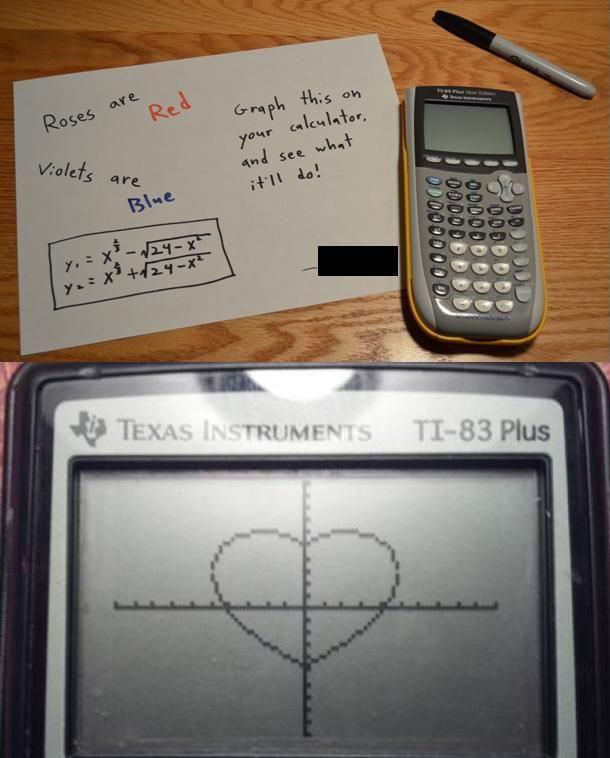 Roses are Red
Violets are Blue
y₁ = x^(2/3) − √(24 − x²)
y₂ = x^(2/3) + √(24 − x²)
Graph this on
your calculator,
and see what
it'll do!
TI-84 Plus Silver Edition
TEXAS INSTRUMENTS
Sharpie
TEXAS INSTRUMENTS TI-83 Plus